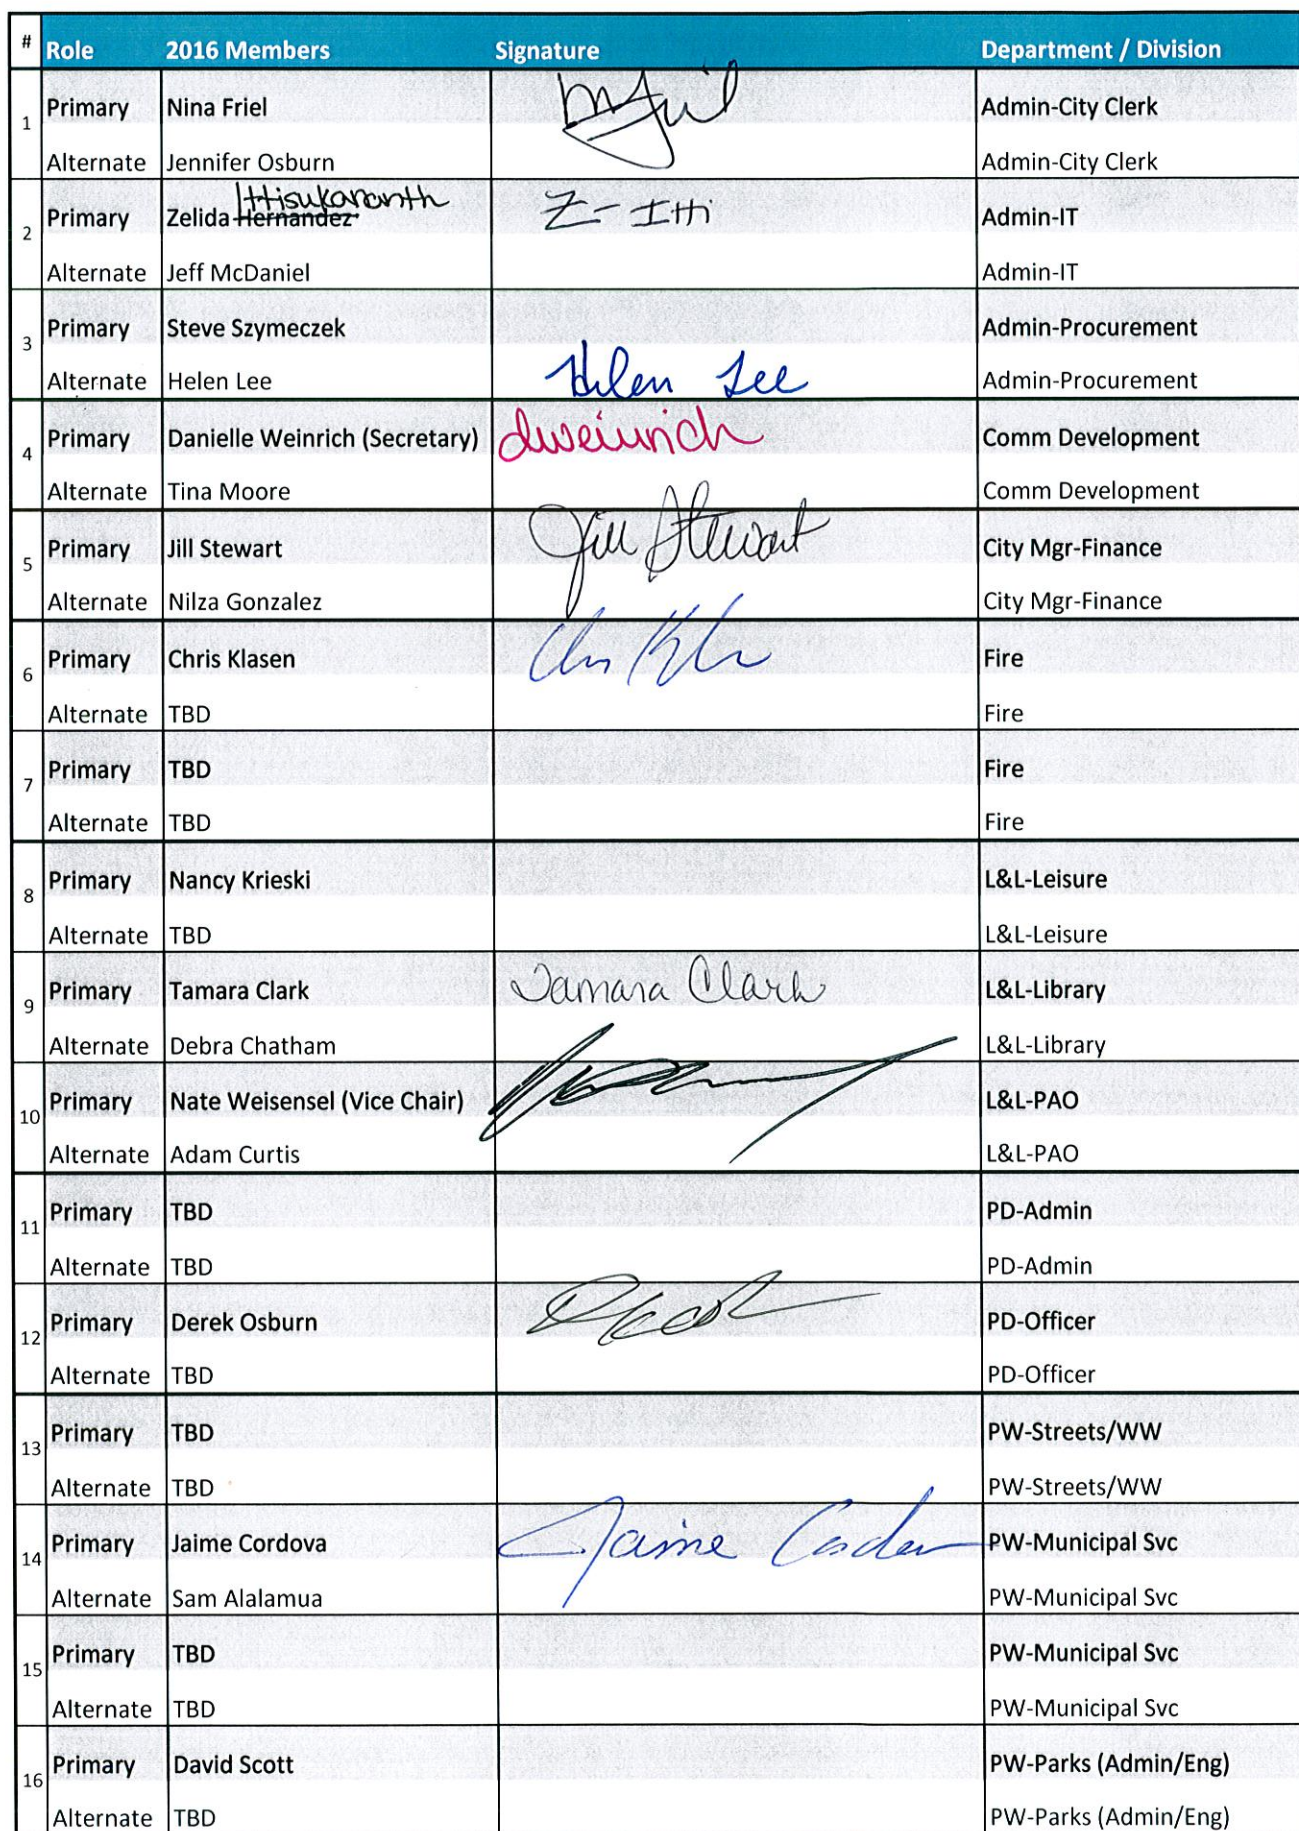 # Role 2016 Members Signature Department / Division
1 Primary Nina Friel Admin-City Clerk
Alternate Jennifer Osburn Admin-City Clerk
Ittisukananth
2 Primary Zelida Hernandez Z- Itti Admin-IT
Alternate Jeff McDaniel Admin-IT
3 Primary Steve Szymeczek Admin-Procurement
Alternate Helen Lee Helen Lee Admin-Procurement
4 Primary Danielle Weinrich (Secretary) dweinrich Comm Development
Alternate Tina Moore Comm Development
5 Primary Jill Stewart Jill Stewart City Mgr-Finance
Alternate Nilza Gonzalez City Mgr-Finance
6 Primary Chris Klasen Fire
Alternate TBD Fire
7 Primary TBD Fire
Alternate TBD Fire
8 Primary Nancy Krieski L&L-Leisure
Alternate TBD L&L-Leisure
9 Primary Tamara Clark Tamara Clark L&L-Library
Alternate Debra Chatham L&L-Library
10 Primary Nate Weisensel (Vice Chair) L&L-PAO
Alternate Adam Curtis L&L-PAO
11 Primary TBD PD-Admin
Alternate TBD PD-Admin
12 Primary Derek Osburn PD-Officer
Alternate TBD PD-Officer
13 Primary TBD PW-Streets/WW
Alternate TBD PW-Streets/WW
14 Primary Jaime Cordova Jaime PW-Municipal Svc
Alternate Sam Alalamua PW-Municipal Svc
15 Primary TBD PW-Municipal Svc
Alternate TBD PW-Municipal Svc
16 Primary David Scott PW-Parks (Admin/Eng)
Alternate TBD PW-Parks (Admin/Eng)